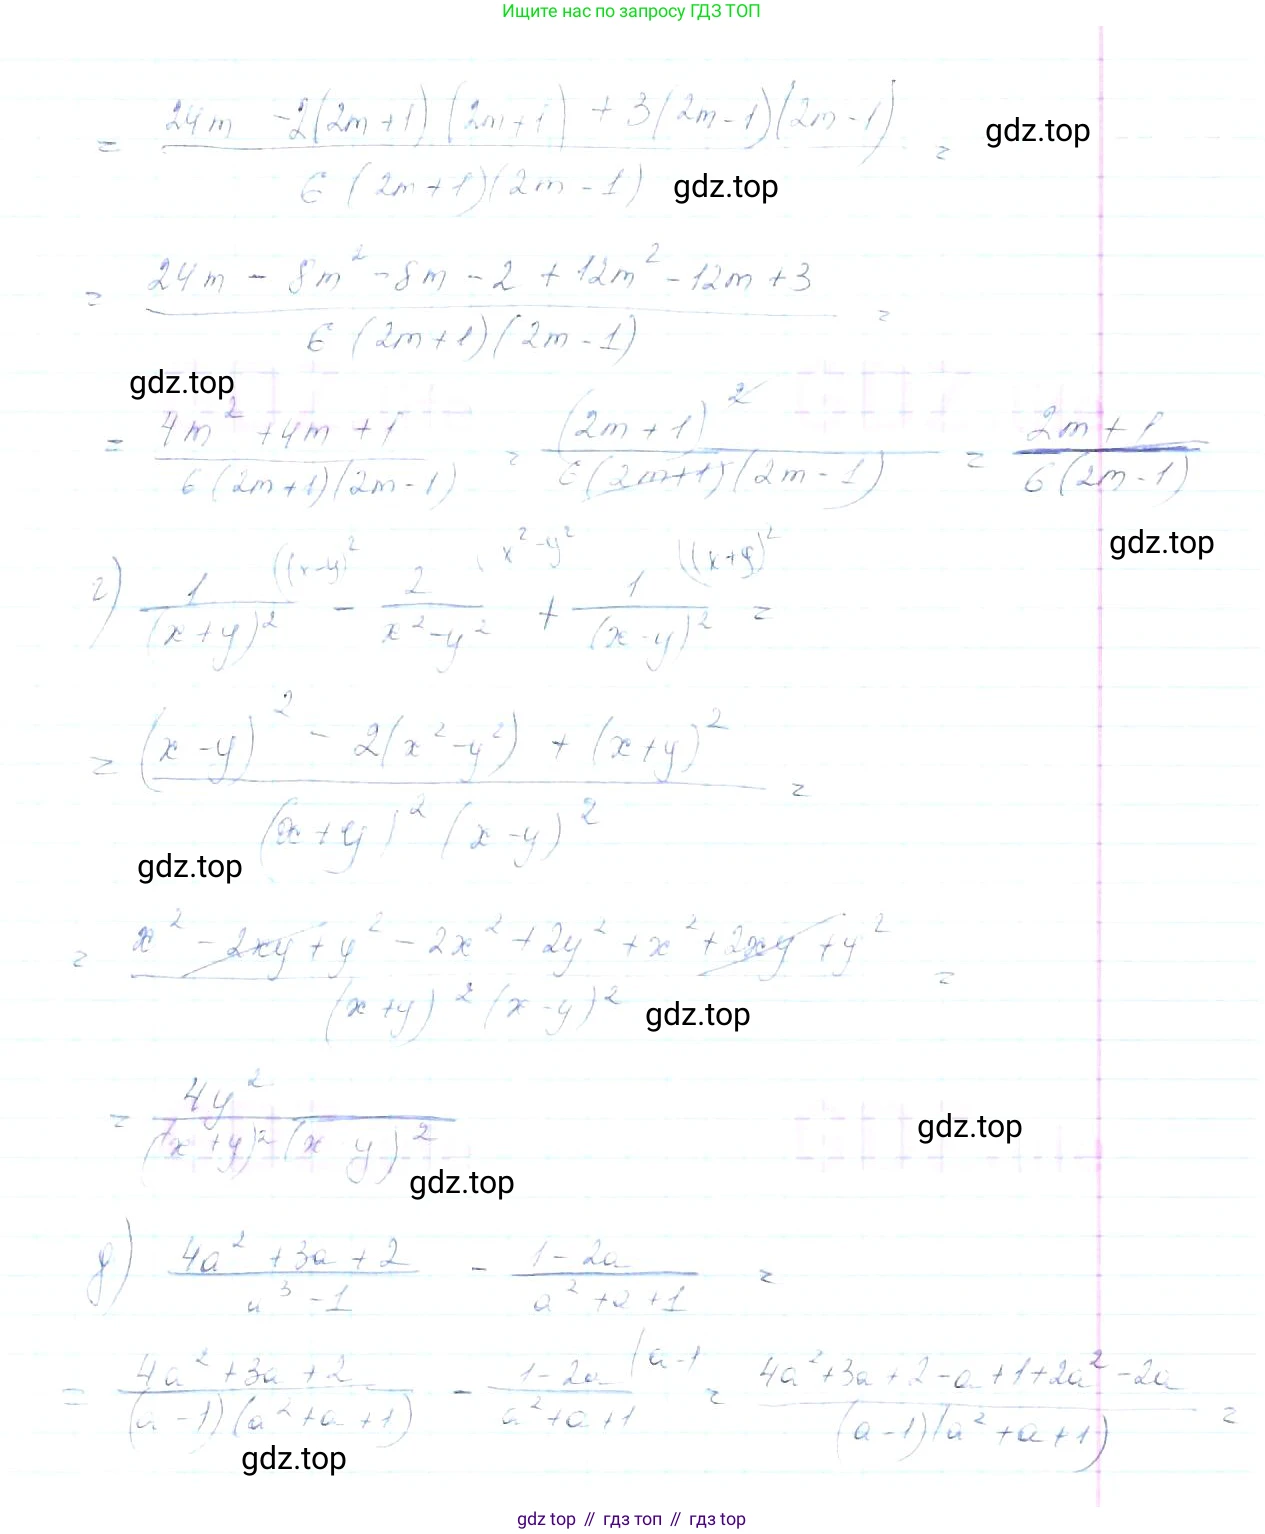 Ищите нас по запросу ГДЗ ТОП
= (24m - 2(2m+1)(2m+1) + 3(2m-1)(2m-1)) / (6(2m+1)(2m-1)) =
gdz.top
gdz.top
= (24m - 8m² - 8m - 2 + 12m² - 12m + 3) / (6(2m+1)(2m-1)) =
gdz.top
= (4m² + 4m + 1) / (6(2m+1)(2m-1)) = (2m+1)² / (6(2m+1)(2m-1)) = (2m+1) / (6(2m-1))
gdz.top
г) 1 / (x+y)² ((x-y)² - 2 / (x²-y²) (x²-y² + 1 / (x-y)² ((x+y)² =
= ((x-y)² - 2(x²-y²) + (x+y)²) / ((x+y)² (x-y)²) =
gdz.top
= (x² - 2xy + y² - 2x² + 2y² + x² + 2xy + y²) / ((x+y)² (x-y)²) =
gdz.top
= 4y² / ((x+y)² (x y)²)
gdz.top
gdz.top
д) (4a² + 3a + 2) / (a³ - 1) - (1 - 2a) / (a² + a + 1) =
= (4a² + 3a + 2) / ((a-1)(a² + a + 1)) - (1 - 2a) / (a² + a + 1) (a-1 = (4a² + 3a + 2 - a + 1 + 2a² - 2a) / ((a-1)(a² + a + 1)) =
gdz.top
gdz top // гдз топ // gdz top